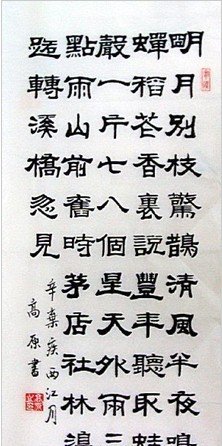 明月別枝驚鵲清風半夜鳴
蟬稻花香裏說豐年聽取蛙
聲一片七八個星天外兩三
點雨山前舊時茅店社林邊
路轉溪橋忽見
辛棄疾西江月
高原書